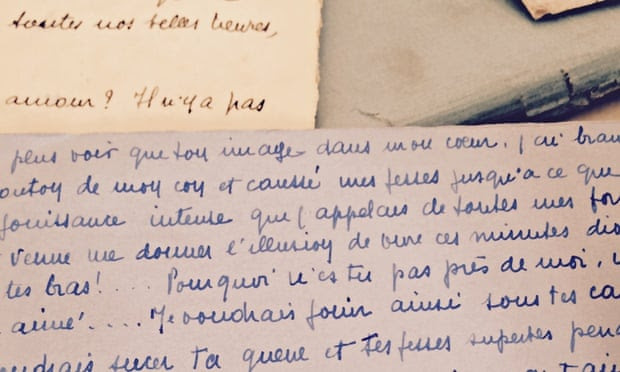 toutes nos belles heures,
amour? Il n'y a pas
peux voir que ton image dans mon cœur. J'ai bran
de mon con et caressé mes fesses jusqu'à ce que
jouissance intense que j'appelais de toutes mes for
venue me donner l'illusion de vivre ces minutes
tes bras!.... Pourquoi n'es tu pas près de moi,
aimé.... Je voudrais jouir ainsi sous tes ca
sucer ta queue et tes fesses superbes pend